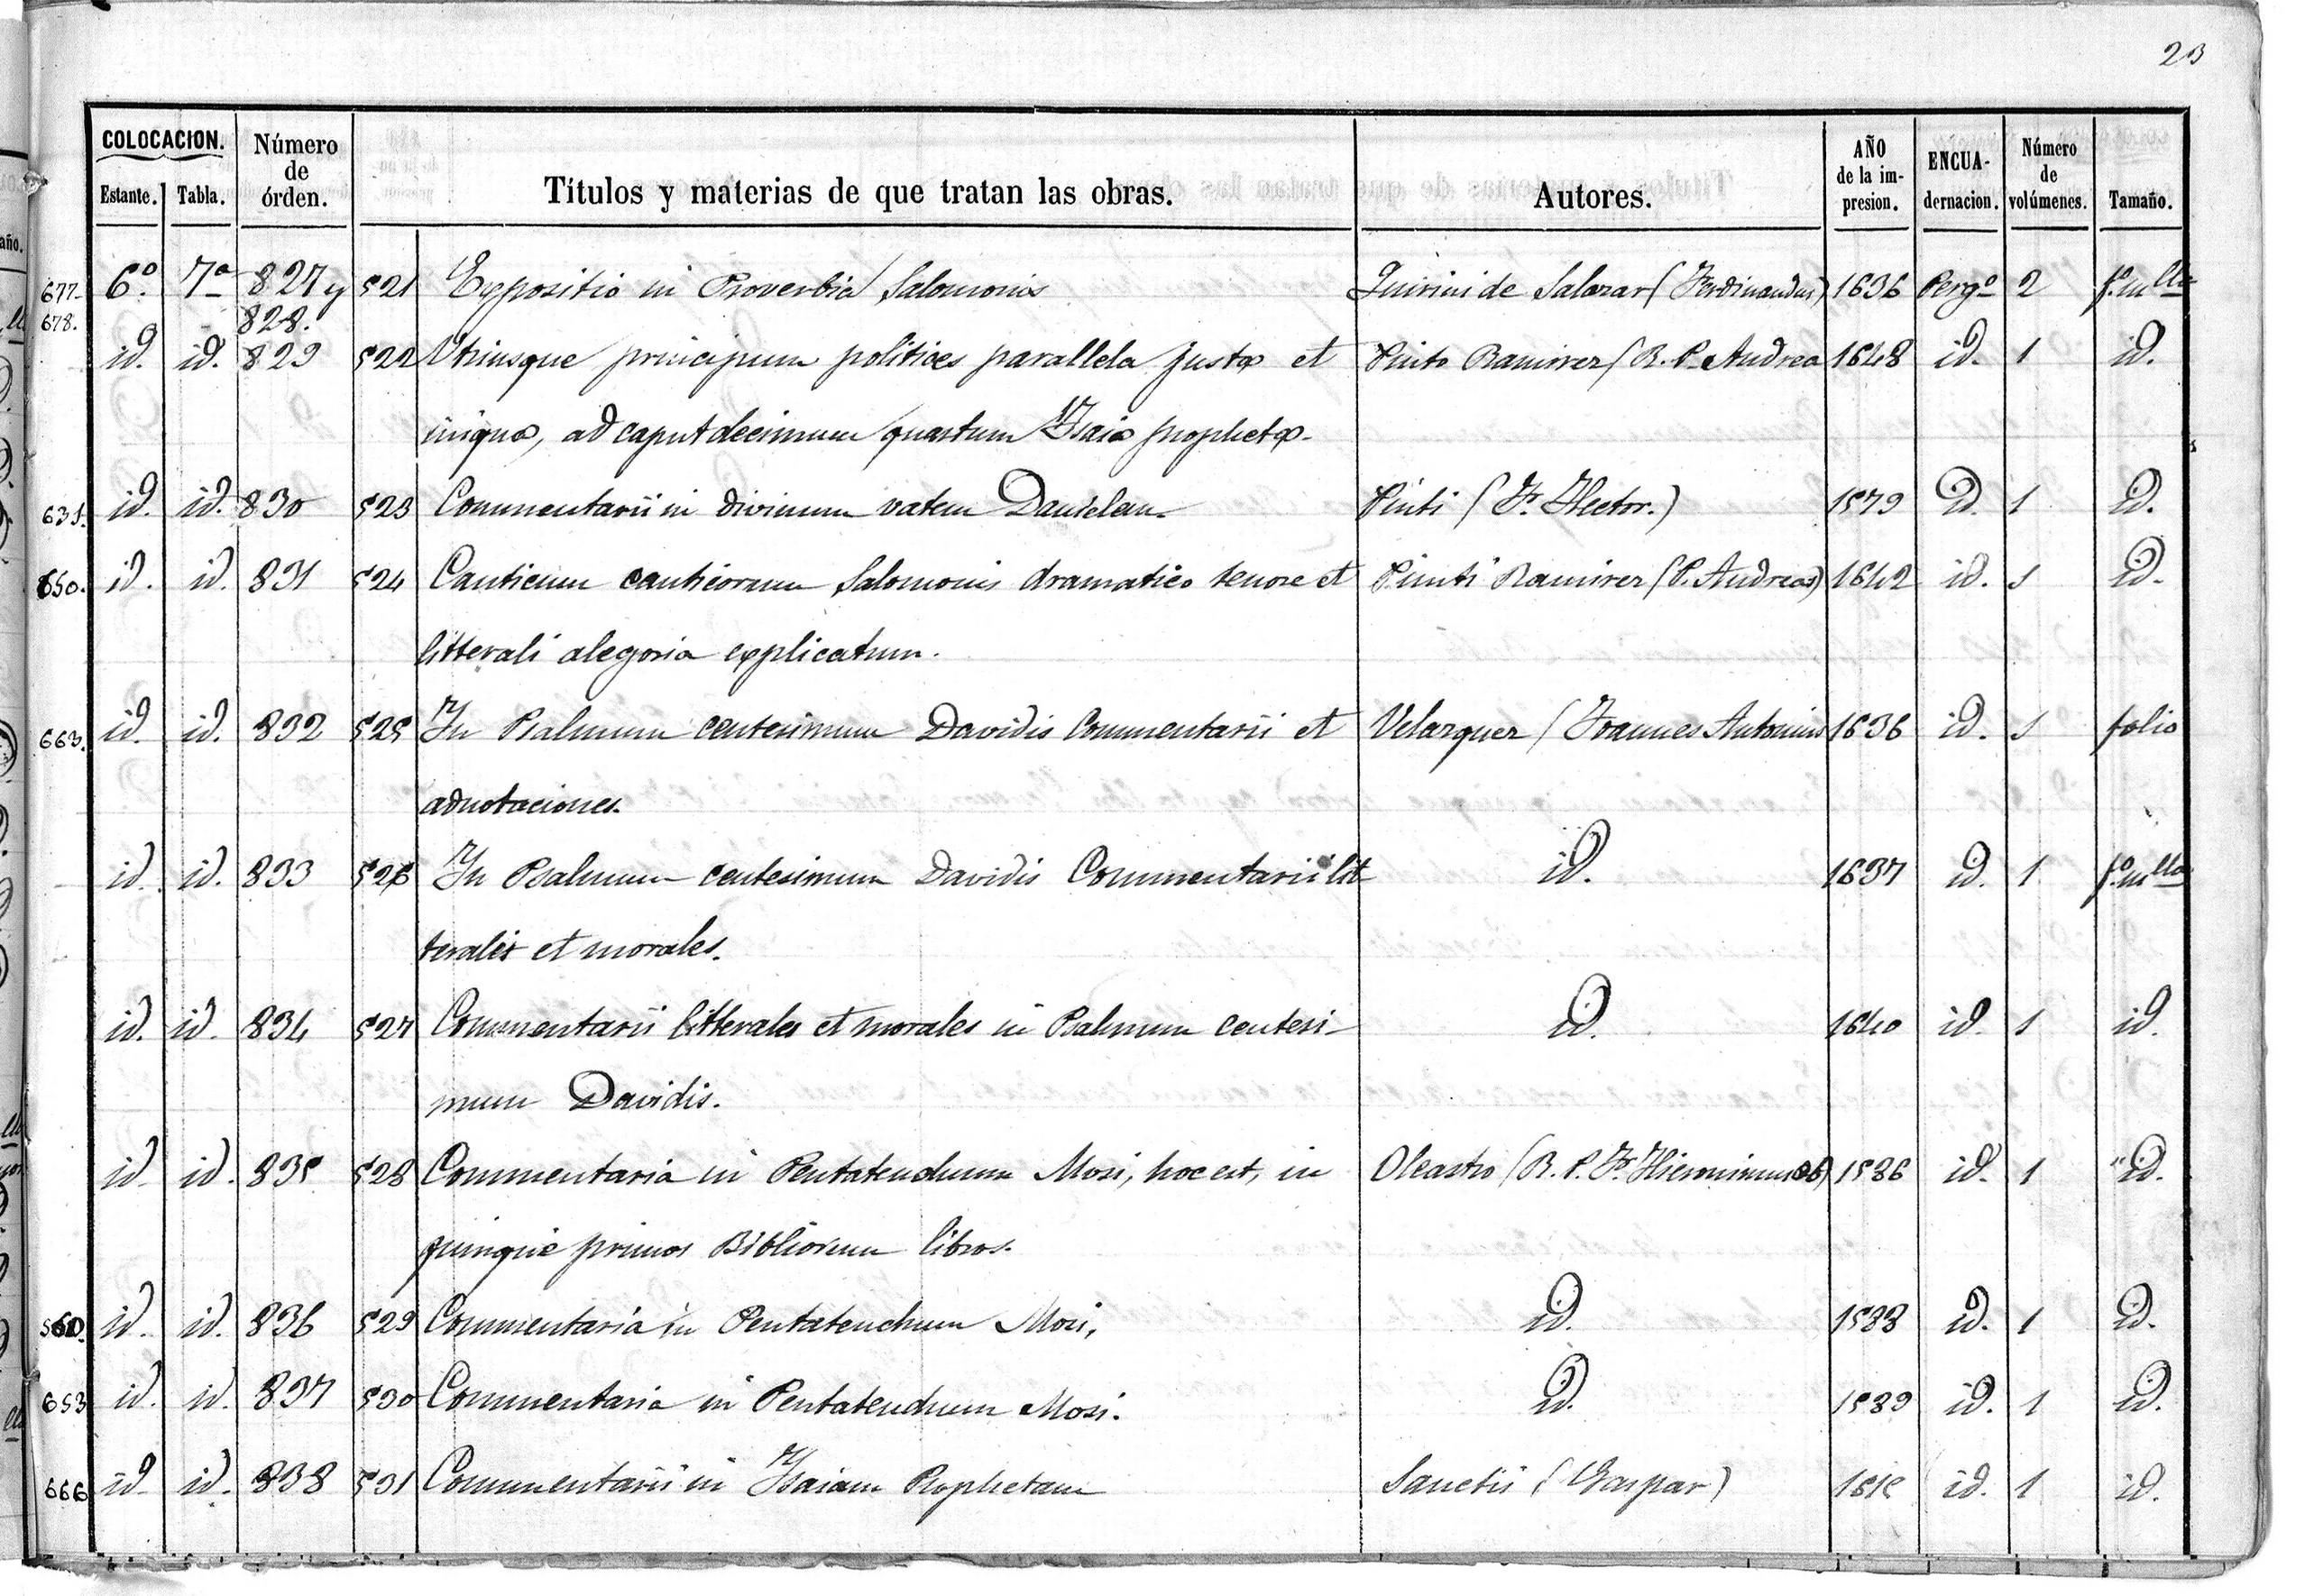 23
COLOCACION. Número de órden. Títulos y materias de que tratan las obras. Autores. AÑO de la impresion. ENCUA-dernacion. Número de volúmenes. Tamaño.
Estante. Tabla.
677- 6º 7ª 827 y 521 Expositio in Proverbia Salomonis Quirini de Salazar (Ferdinandus) 1636 Pergº 2 fº mlla
678. 828.
id. id. 829 522 Utriusque principum politices parallela justæ et Pinto Ramirez (R. P. Andrea 1648 id. 1 id.
iniquæ, ad caput decimum quartum Isaiæ prophetæ.
631. id. id. 830 523 Commentarii in divinum vatem Danielem. Pinti (Fr. Hector.) 1579 id. 1 id.
650. id. id. 831 524 Canticum canticorum Salomonis dramatico tenore et Pinti Ramirez (P. Andreas) 1642 id. 1 id.
litterali alegoria explicatum.
663. id. id. 832 525 In Psalmum centesimum Davidis Commentarii et Velazquez (Joannes Antonius 1636 id. 1 folio
adnotaciones.
id. id. 833 526 In Psalmum centesimum Davidis Commentarii lit- id. 1637 id. 1 fº mlla
terales et morales.
id. id. 834 527 Commentarii litterales et morales in Psalmum centesi- id. 1640 id. 1 id.
mum Davidis.
id. id. 835 528 Commentaria in Pentateuchum Mosi, hoc est, in Oleastro (R. P. Fr. Hieronimus ab) 1586 id. 1 id.
quinque primos Bibliorum libros.
id. id. 836 529 Commentaria in Pentateuchum Mosi, id. 1588 id. 1 id.
653 id. id. 837 530 Commentaria in Pentateuchum Mosi. id. 1589 id. 1 id.
666 id. id. 838 531 Commentarii in Isaiam Prophetam Sanctii (Gaspar) id. 1 id.